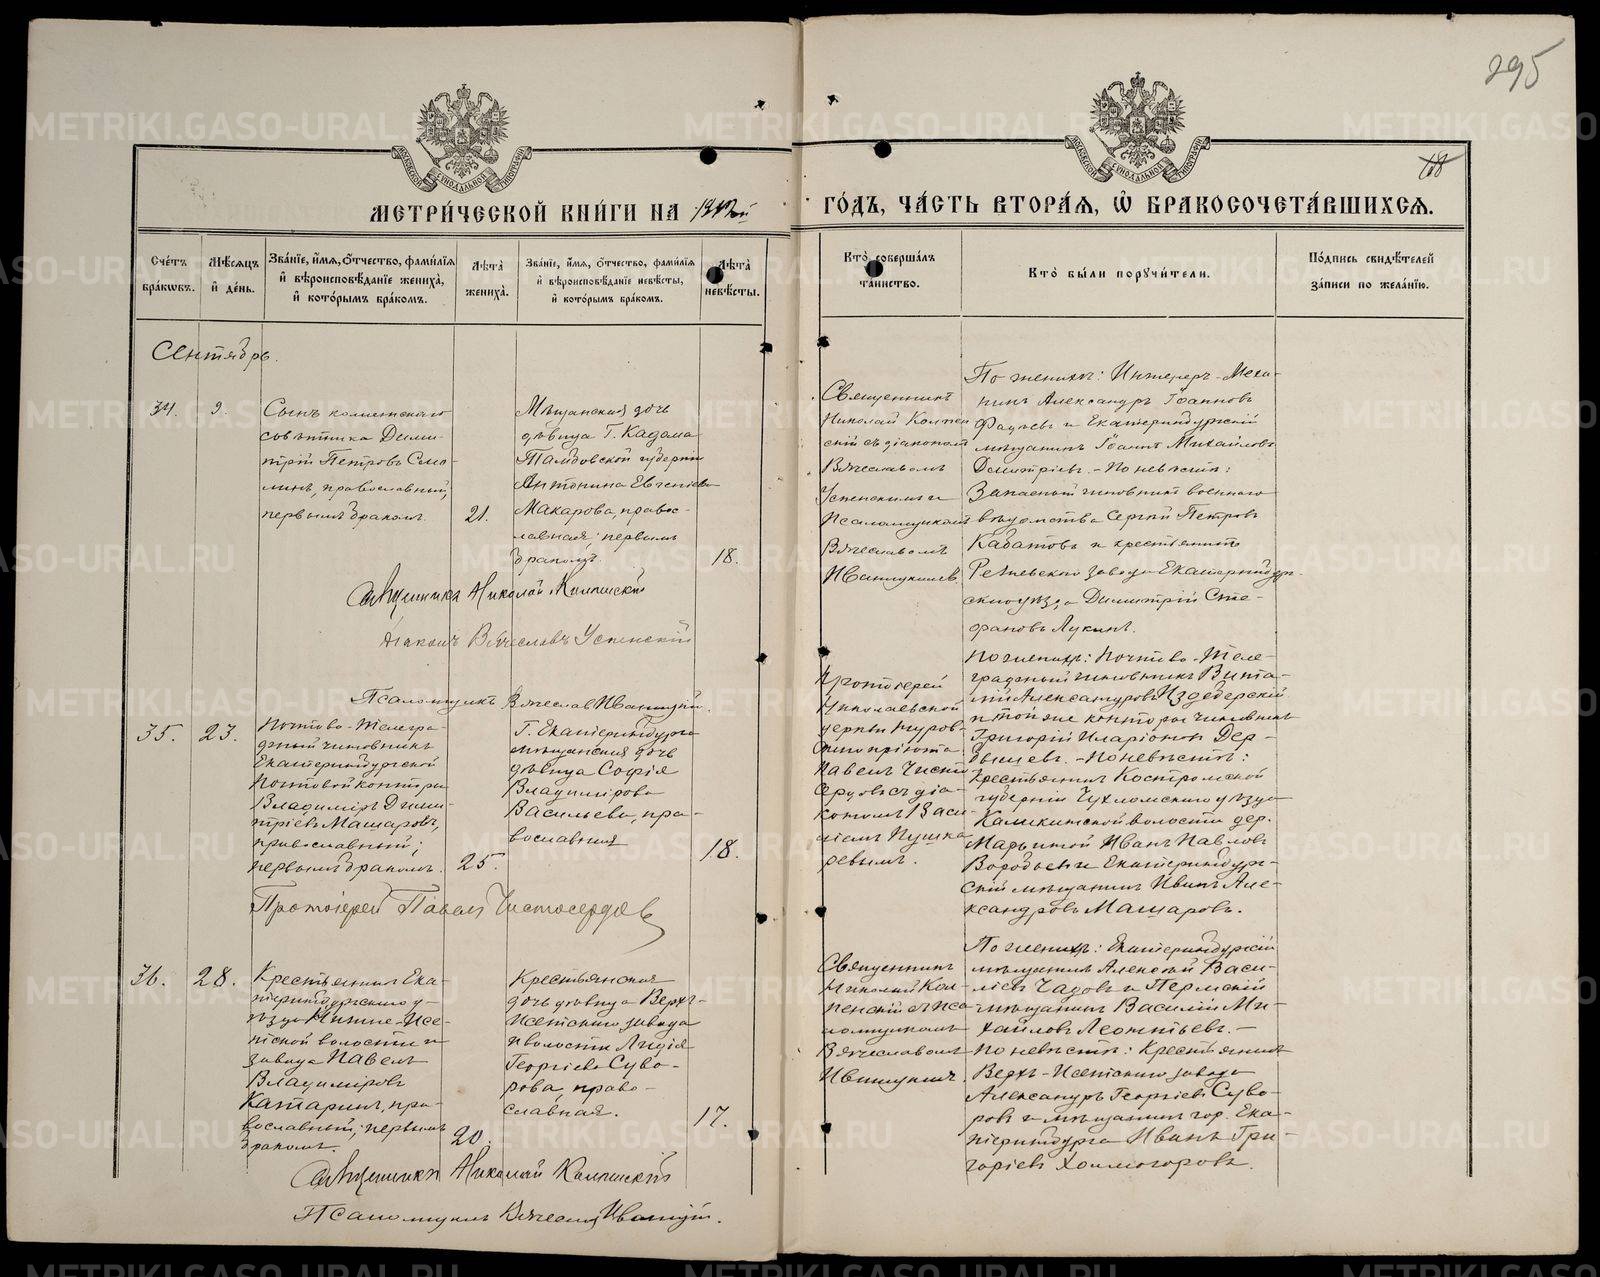 295
68
МЕТРИ́ЧЕСКОЙ КНИ́ГИ НА
ГО́ДЪ, ЧА́СТЬ ВТОРА́Я, Ѿ БРАКОСОЧЕТА́ВШИХСЯ.
Сче́тъ бра́кωвъ.
Мѣ́сяцъ и҆ де́нь.
Зва́нїе, и҆́мя, ѻ҆́тчество, фами́лїя и҆ вѣроисповѣ́данїе жениха̀, и҆ кото́рымъ бра́комъ.
Лѣ́та жениха̀.
Зва́нїе, и҆́мя, ѻ҆́тчество, фами́лїя и҆ вѣроисповѣ́данїе невѣ́сты, и҆ кото́рымъ бра́комъ.
Лѣ́та невѣ́сты.
Кто̀ соверша́лъ та́инство.
Кто̀ бы́ли порꙋчи́тели.
По́дпись свидѣ́телей за́писи по жела́нїю.
Сентябрь.
34.
9.
Сынъ коллежскаго
совѣтника Дими-
трій Петровъ Смо-
линъ, православный,
первымъ бракомъ.
21.
Мѣщанская дочь
дѣвица Г. Кадома
Тамбовской губерніи
Антонина Евгеніева
Макарова, правос-
лавная; первымъ
бракомъ.
18.
Священникъ
Николай
скій съ діакономъ
Вячеславомъ
Успенскимъ и
псаломщикомъ
Вячеславомъ
По женихѣ: Инженеръ-Меха-
никъ Александръ Іоанновъ
Фадѣевъ и Екатеринбургскій
мѣщанинъ Іоаннъ Михайловъ
Димитріевъ. - По невѣстѣ:
Запасный чиновникъ военнаго
вѣдомства Сергѣй Петровъ
Кабатовъ и крестьянинъ
Режевского завода Екатеринбург-
скаго уѣзда Димитрій Сте-
фановъ Лукинъ.
Священникъ Николай
Діаконъ Вячеславъ Успенскій
Псаломщикъ Вячеслав
35.
23.
Почтово-Телегра-
фный чиновникъ
Екатеринбургской
почтовой конторы
Владиміръ Дими-
тріевъ Машаровъ,
православный;
первымъ бракомъ.
25.
Г. Екатеринбурга
мѣщанская дочь
дѣвица Софія
Владимірова
Васильева, пра-
вославная
18.
Протоіерей
Николаевской
церкви Нуров-
скаго пріюта
Павелъ Чисто
сердовъ съ діа-
кономъ Васи-
ліемъ Пушка
ревымъ.
По женихѣ: Почтово-Теле-
графный чиновникъ Вита-
лій Александровъ
и той же конторы чиновникъ
Григорій Иларіоновъ Дер-
бышевъ. - По невѣстѣ:
крестьянинъ Костромской
губерніи Чухломскаго уѣзда
волости дер.
Марьиной Иванъ Павловъ
Воробьевъ и Екатеринбург-
скій мѣщанинъ Иванъ Але-
ксандровъ Машаровъ.
Протоіерей Павелъ Чистосердовъ
36.
28.
Крестьянинъ Ека-
теринбургскаго у-
ѣзда Нижне-Исе-
тской волости и
завода Павелъ
Владиміровъ
Катаринъ, пра-
вославный; первымъ
бракомъ.
20.
Крестьянская
дочь дѣвица Верхъ-
Исетскаго завода
и волости Лидія
Георгіева Суво-
рова, право-
славная.
17.
Священникъ
Николай
псаломщикомъ
Вячеславомъ
По женихѣ: Екатеринбургскій
мѣщанинъ Алексѣй Васи-
ліевъ Чадовъ и Пермскій
мѣщанинъ Василій Ми-
хайловъ Леонтьевъ. -
По невѣстѣ: Крестьянинъ
Верхъ-Исетскаго завода
Александръ Георгіевъ Суво-
ровъ и мѣщанинъ гор. Ека-
теринбурга Иванъ Гри-
горіевъ Холмогоровъ.
Священникъ Николай
Псаломщикъ Вячеслав
METRIKI.GASO-URAL.RU